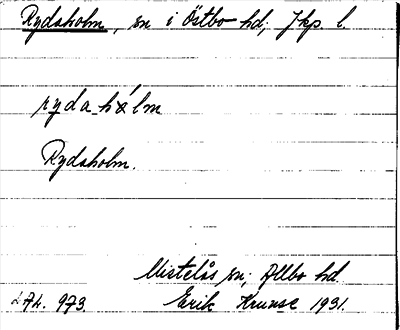 Rydaholm, sn i Östbo hd; Jkp. l.
ryda hálm
Rydaholm.
Mistelås sn; Allbo hd.
Erik Krunse 1931.